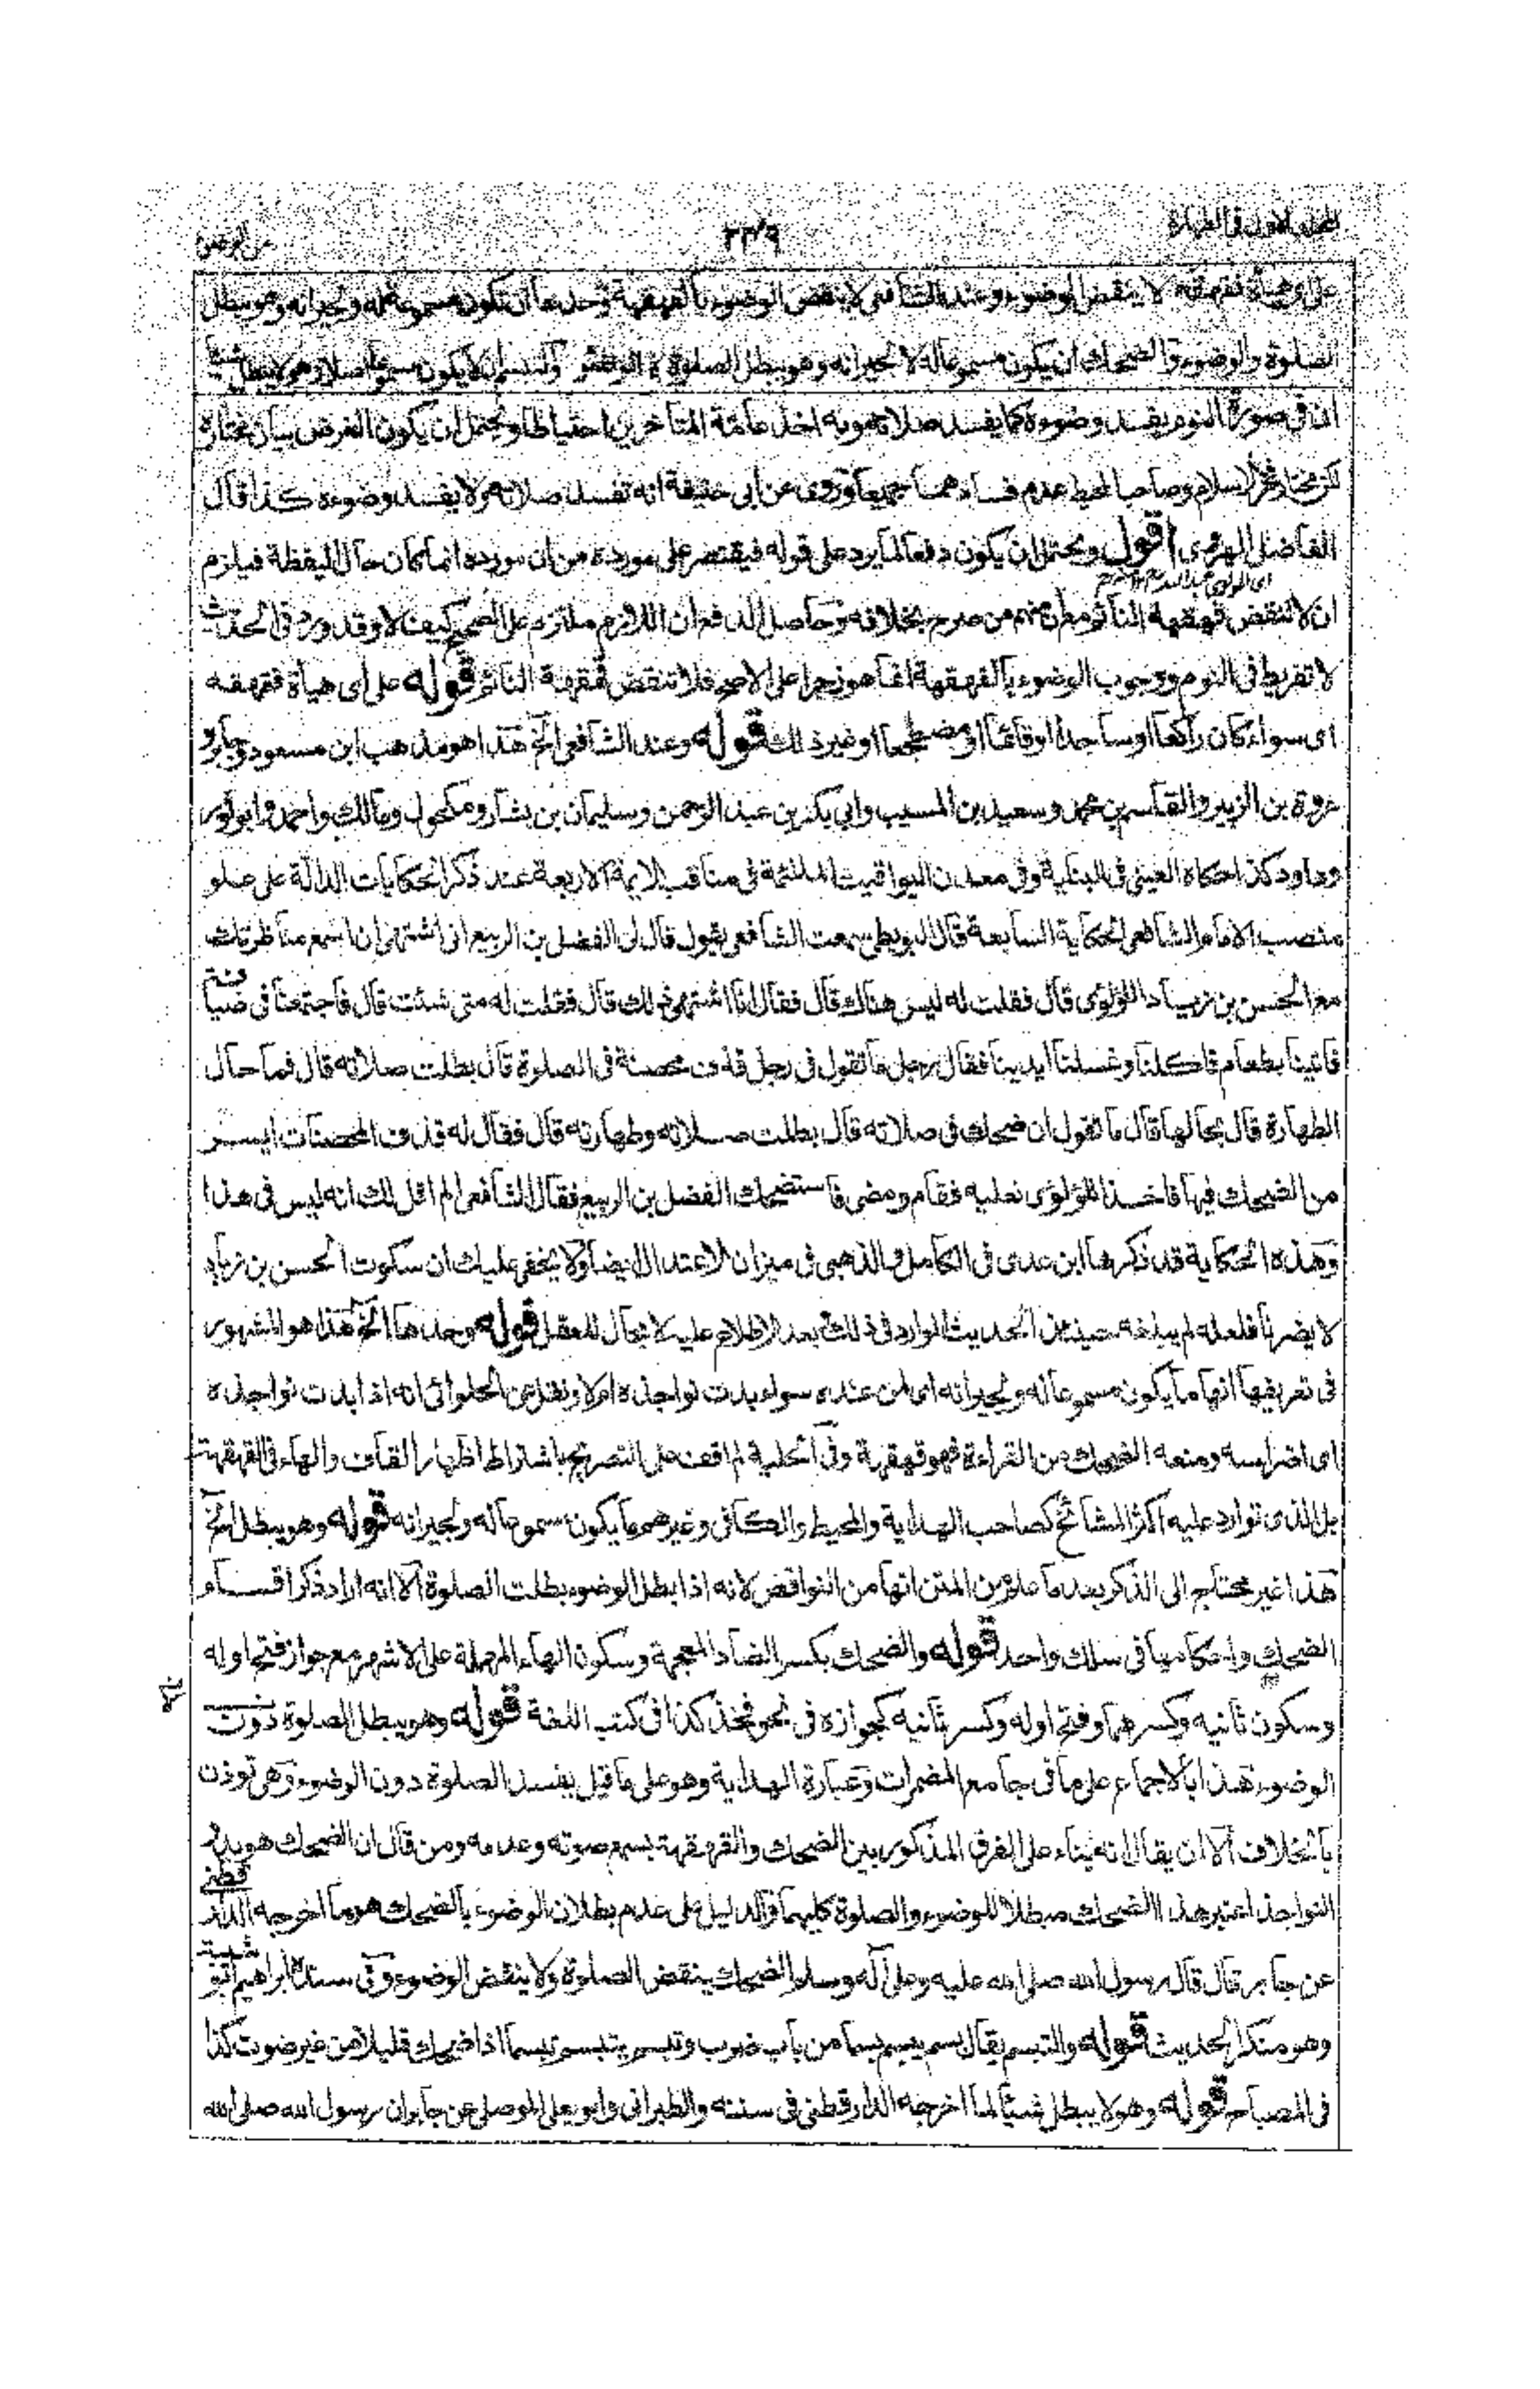 المجلد الاول فى الطهارة
٢٣٩
على اى هيأة قهقهته لا ينقض الوضوء وعند الشافعى لا ينقض الوضوء بالقهقهة وحدها ان تكون مسموعة له ولجيرانه وهو يبطل
الصلوة والوضوء والضحك ان يكون مسموعا له لا لجيرانه وهو يبطل الصلوة لا الوضوء والتبسم ان لا يكون مسموعا اصلا وهو لا يبطل شيئا
ان فى صورة النوم يفسد وضوءه كما يفسد صلاته وبه اخذ عامة المتأخرين احتياطا ويحتمل ان يكون الغرض بيان مختاره
لكن مختار فخر الاسلام وصاحب المحيط عدم فسادهما جميعا وروى عن ابى حنيفة انه تفسد صلاته ولا يفسد وضوءه كذا قال
الفاضل الهروى اقول ويحتمل ان يكون دفعا لما يرد على قوله فيقتصر على مورده من ان مورده انما كان حال اليقظة فيلزم
ان لا تنقض قهقهة النائم مع ان منهم من صرح بخلافه وحاصل الدفع ان اللازم ملتزم على الصحيح كيف لا وقد ورد فى الحديث
لا تفريط فى النوم ووجوب الوضوء بالقهقهة انما هو زجرا على الاصح فلا تنقض قهقهة النائم قوله على اى هيأة قهقهه
اى سواء كان راكعا او ساجدا او قائما او مضطجعا او غير ذلك قوله وعند الشافعى الخ هذا هو مذهب ابن مسعود وجابر و
عروة بن الزبير والقاسم بن محمد وسعيد بن المسيب وابى بكر بن عبد الرحمن وسليمان بن يشار ومكحول ومالك واحمد وابو ثور
وداود كذا حكاه العينى فى البناية وفى معدن اليواقيت الملتمعة فى مناقب الايمة الاربعة عند ذكر الحكايات الدالة على علو
منصب الامام الشافعى الحكاية السابعة قال البويطى سمعت الشافعى يقول قال لى الفضل بن الربيع انى اشتهى ان اسمع مناظرتك
مع الحسن بن زياد اللؤلؤى قال فقلت له ليس هناك قال فقال انا اشتهى ذلك قال فقلت له متى شئت قال فاجتمعنا فى ضيافته
فاتينا بطعام فاكلنا وغسلنا ايدينا فقال رجل ما تقول فى رجل قذف محصنة فى الصلوة قال بطلت صلاته قال فما حال
الطهارة قال بحالها قال ما تقول ان ضحك فى صلاته قال بطلت صلاته وطهارته قال فقال له قذف المحصنات ايسر
من الضحك فيها فاخذ اللؤلؤى نعليه فقام ومضى فاستضحك الفضل بن الربيع فقال الشافعى الم اقل لك انه ليس فى هذا
وهذه الحكاية قد ذكرها ابن عدى فى الكامل والذهبى فى ميزان الاعتدال ايضا ولا يخفى عليك ان سكوت الحسن بن زياد
لا يضرنا فلعله لم يبلغه حينئذ الحديث الوارد فى ذلك بعد الاطلاع عليه لا مجال للعقل قوله وحدها الخ هذا هو المشهور
فى تعريفها انها ما يكون مسموعا له ولجيرانه اى لمن عنده سواء بدت نواجذه ام لا ونقل عن الحلوائى انه اذا بدت نواجذه
اى اضراسه ومنعه الضحك من القراءة فهو قهقهة وفى الحلية لم اقف على التصريح باشتراط اظهار القاف والهاء فى القهقهة
بل الذى توارد عليه اكثر المشائخ كصاحب الهداية والمحيط والكافى وغيرهم ما يكون مسموعا له ولجيرانه قوله وهو يبطل الخ
هذا غير محتاج الى الذكر بعد ما علم من المتن انها من النواقض لانه اذا بطل الوضوء بطلت الصلوة الا انه اراد ذكر اقسام
الضحك واحكامها فى سلك واحد قوله والضحك بكسر الضاد المعجمة وسكون الهاء المهملة على الاشهر مع جواز فتح اوله
وسكون ثانيه وكسرهما وفتح اوله وكسر ثانيه كجوازه فى نحو فخذ كذا فى كتب اللغة قوله وهو يبطل الصلوة دون
الوضوء هذا بالاجماع على ما فى جامع المضمرات وعبارة الهداية وهو على ما قيل يفسد الصلوة دون الوضوء وهى توذن
بالخلاف الا ان يقال انه بناء على الفرق المذكور بين الضحك والقهقهة بسمع صوته وعدمه ومن قال ان الضحك هو بدو
النواجذ اعتبر هذا الضحك مبطلا للوضوء والصلوة كليهما والدليل على عدم بطلان الوضوء بالضحك هو ما اخرجه الدارقطنى
عن جابر قال قال رسول الله صلى الله عليه وعلى آله وسلم الضحك ينقض الصلوة ولا ينقض الوضوء وفى سنده ابراهيم ابو شيبة
وهو منكر الحديث قوله والتبسم يقال بسم يبسم بسما من باب ضرب وتبسم يتبسم تبسما اذا ضحك قليلا من غير صوت كذا
فى المصباح قوله وهو لا يبطل شيئا لما اخرجه الدارقطنى فى سننه والطبرانى وابو يعلى الموصلى عن جابر ان رسول الله صلى الله